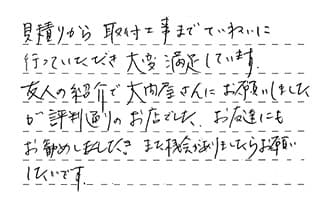 見積りから 取付工事まで ていねいに
行っていただき 大変 満足しています.
友人の紹介で 大内屋さんに お願いしました
が 評判通りの お店でした. お友達にも
お勧めしましたき また機会がありましたらお願い
したいです.